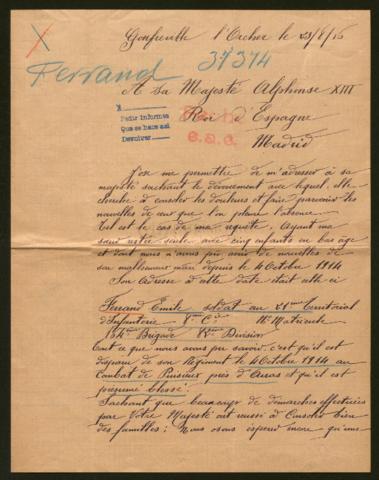 Gonfreville l'Orcher le 23/8/15
37374
Ferrand
A Sa Majesté Alphonse XIII
Roi d'Espagne
Madrid
Pedir informes
Que se hace así
Devolver
J'ose me permettre de m'adresser à sa
majesté sachant le dévouement avec lequel elle
cherche à consoler les douleurs et faire parvenir les
nouvelles de ceux que l'on pleure l'absence.
Tel est le cas de ma requête. Ayant ma
sœur restée seule avec cinq enfants en bas âge
et dont nous n'avons pu avoir de nouvelles de
son malheureux mari depuis le 4 Octobre 1914
Son adresse à cette date était celle ci
Ferrand Emile soldat au 21eme Territorial
d'Infanterie Cie No Matricule
Brigade Division
tout ce que nous avons pu savoir c'est qu'il est
disparu de son Régiment le 4 Octobre 1914 au
combat de Puisieux près d'Arras et qu'il est
présumé blessé.
Sachant que beaucoup de démarches effectuées
par Votre Majesté ont réussi à Consoler bien
des familles; Nous osons espérer encore qu'une